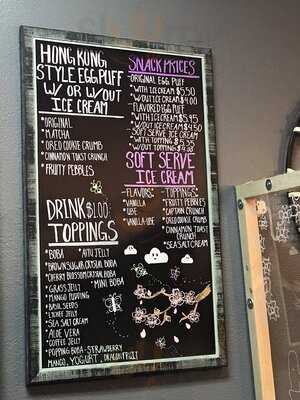 HONG KONG
STYLE EGG PUFF
W/ OR W/OUT
ICE CREAM
*ORIGINAL
*MATCHA
*OREO COOKIE CRUMBS
*CINNAMON TOAST CRUNCH
*FRUITY PEBBLES
DRINK $1.00
TOPPINGS
*BOBA *AIYU JELLY
*BROWN SUGAR CRYSTAL BOBA
*CHERRY BLOSSOM CRYSTAL BOBA
*GRASS JELLY *MINI BOBA
*MANGO PUDDING
*BASIL SEEDS
*LYCHEE JELLY
*SEA SALT CREAM
*ALOE VERA
*COFFEE JELLY
*POPPING BOBA - STRAWBERRY
MANGO, YOGURT, DRAGONFRUIT
SNACK PRICES
-ORIGINAL EGG PUFF
*WITH ICE CREAM $5.50
*W/OUT ICE CREAM $4.00
-FLAVORED EGG PUFF
*WITH ICE CREAM $5.95
*W/OUT ICE CREAM $4.50
-SOFT SERVE ICE CREAM
*WITH TOPPING $5.35
*W/OUT TOPPING $4.50
SOFT SERVE
ICE CREAM
-FLAVORS-
*VANILLA
*UBE
*VANILLA-UBE
-TOPPINGS-
*FRUITY PEBBLES
*CAPTAIN CRUNCH
*OREO COOKIE CRUMBS
*CINNAMON TOAST
CRUNCH
*SEA SALT CREAM